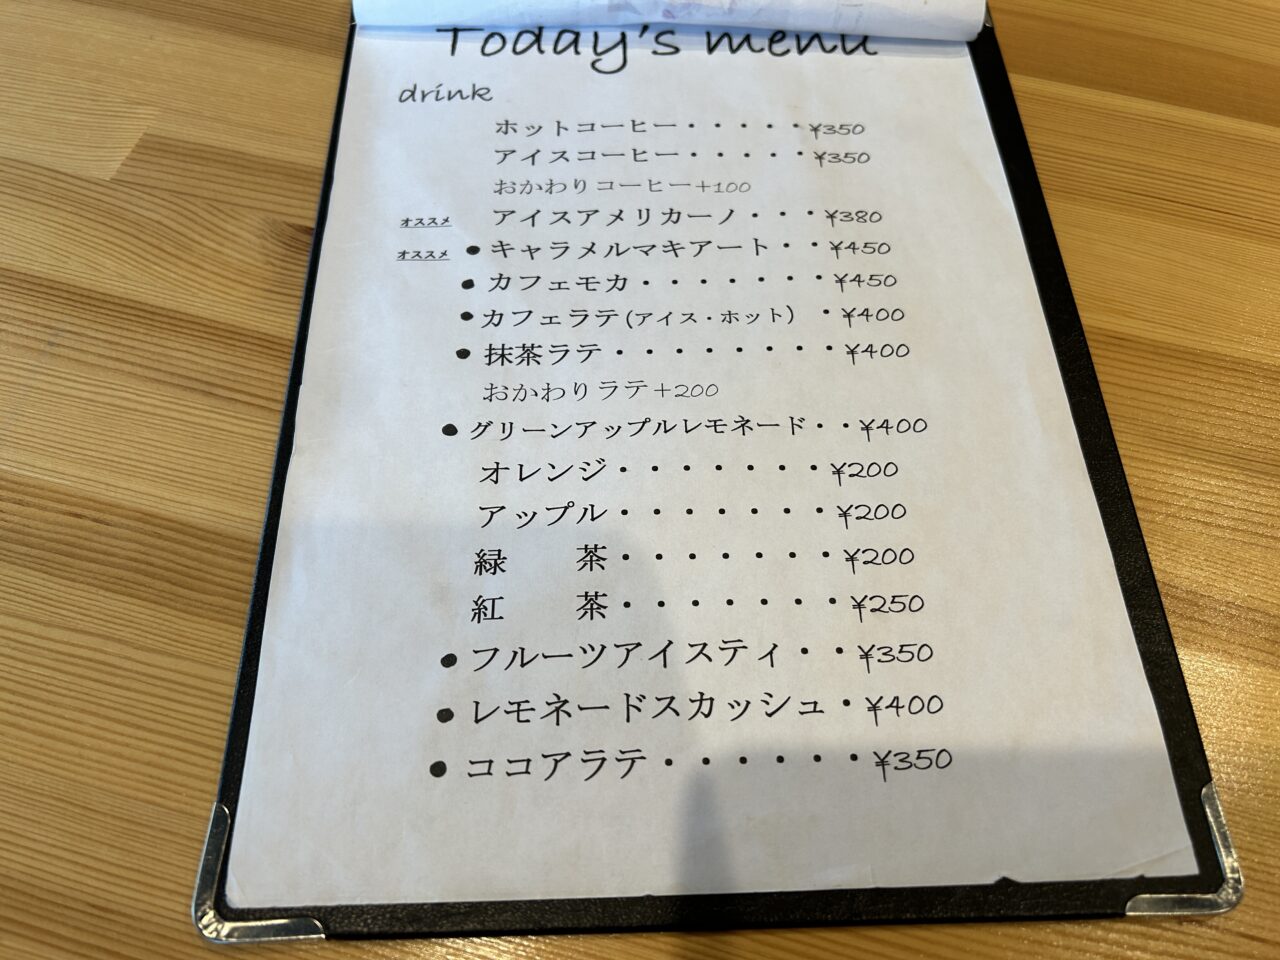 Today's menu
drink
ホットコーヒー・・・・・¥350
アイスコーヒー・・・・・¥350
おかわりコーヒー+100
オススメ アイスアメリカーノ・・・¥380
オススメ ●キャラメルマキアート・・¥450
●カフェモカ・・・・・・・¥450
●カフェラテ(アイス・ホット) ・¥400
●抹茶ラテ・・・・・・・・¥400
おかわりラテ+200
●グリーンアップルレモネード・・¥400
オレンジ・・・・・・・¥200
アップル・・・・・・・¥200
緑　　茶・・・・・・・¥200
紅　　茶・・・・・・・¥250
●フルーツアイスティ・・¥350
●レモネードスカッシュ・¥400
●ココアラテ・・・・・・¥350